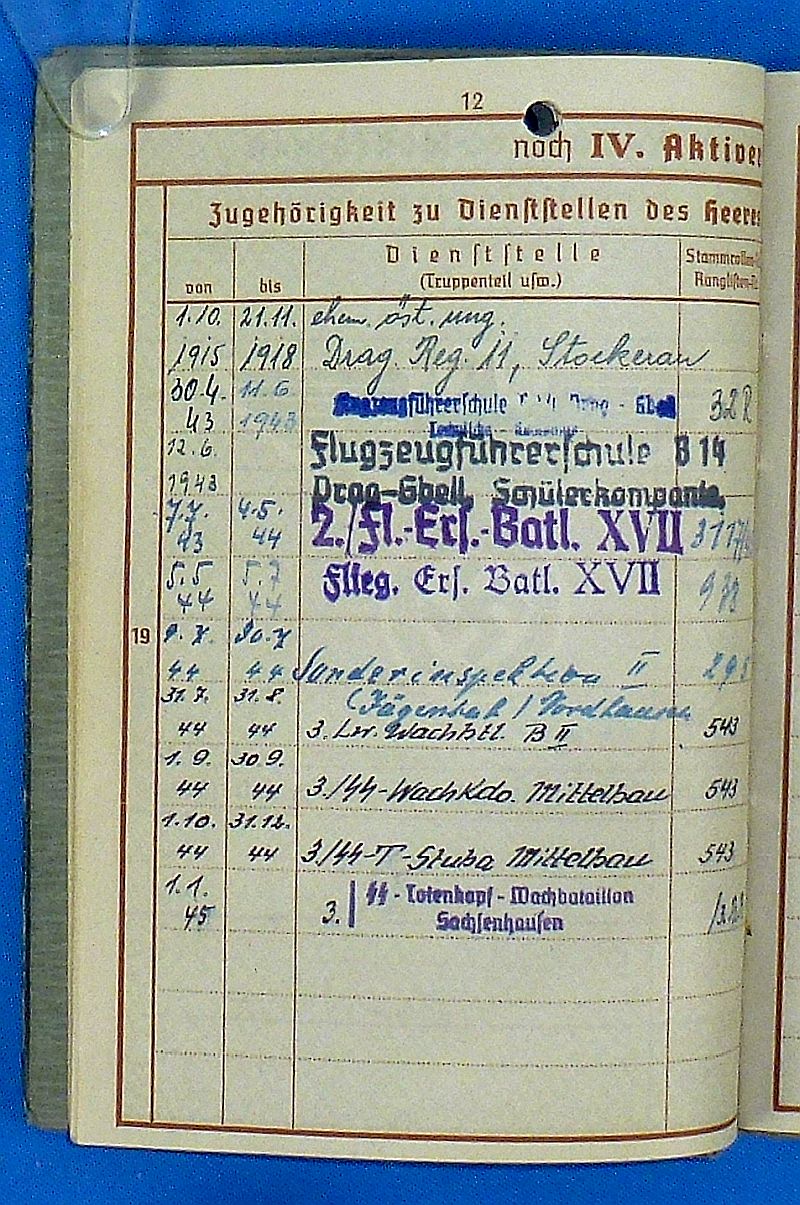 12
noch IV. Aktiver
Zugehörigkeit zu Dienststellen des Heeres
von bis Dienststelle
(Truppenteil usw.)
Stammrollen-
Ranglisten-
1.10. 21.11. ehem. öst. ung.
1915 1918 Drag. Reg. 11, Stockerau
30.4. 11.6
43 1943 Flugzeugführerschule 32
12.6. Flugzeugführerschule B 14
1943 Prag-Gbell, Schülerkompanie
7.7. 4.5. 2./Fl.-Ers.-Batl. XVII
43 44
5.5 5.7 Flieg. Ers. Batl. XVII
44 44
19
44 44 Sonderinspektion II
31.7. 31.8. Nordhausen
44 44 3. Lw. Wachbtl. B II 543
1.9. 30.9.
44 44 3./SS-Wachkdo. Mittelbau 543
1.10. 31.12.
44 44 3/SS-T-Stuba Mittelbau 543
1.1. SS-Totenkopf-Wachbataillon
45 3. Sachsenhausen